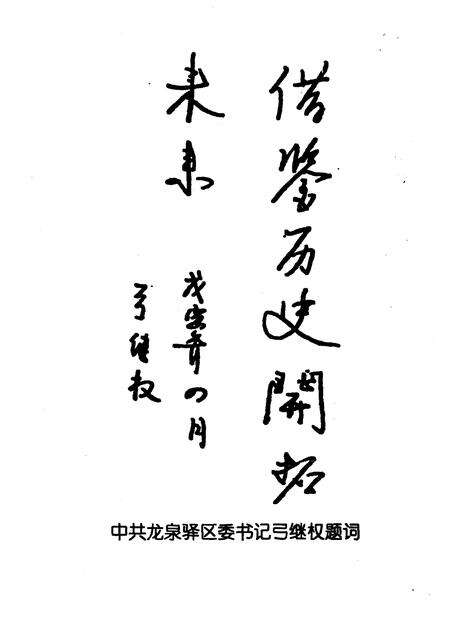 借鉴历史開拓
未来
戊寅年四月
弓继权
中共龙泉驿区委书记弓继权题词